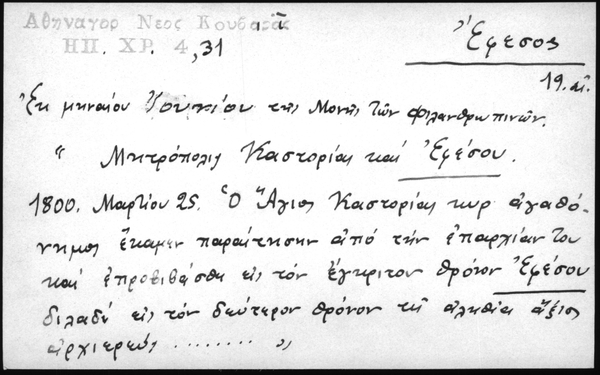 Αθηναγορ Νεος Κουβαρᾶς
ΗΠ. ΧΡ. 4, 31
Ἔφεσος
19. αἰ.
Ἐκ μηναίου Ἰουνίου τῆς Μονῆς τῶν Φιλανθρωπινῶν.
" Μητρόπολις Καστορίας καὶ Ἐφέσου.
1800. Μαρτίου 25. Ὁ Ἅγιος Καστορίας κυρ ἀγαθό-
νημος ἔκαμεν παραίτησιν ἀπό τήν ἐπαρχίαν του
καί ἐπροβιβάσθη εἰς τόν ἔγκριτον θρόνον Ἐφέσου
διλαδέ εἰς τόν δεύτερον θρόνον τῇ ἀληθίᾳ ἄξιος
ἀρχιερεύς ........ "